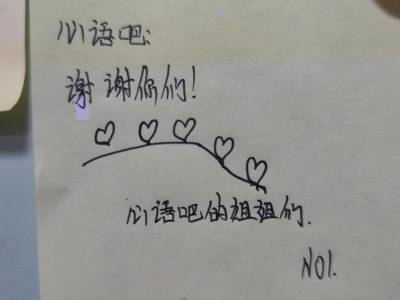 心语吧:
谢谢你们!
心语吧的姐姐们.
NO1.